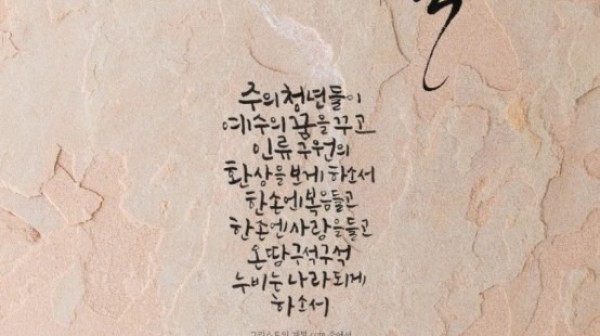 주의 청년들이
예수의 꿈을 꾸고
인류 구원의
환상을 보게 하소서
한손엔 복음들고
한손엔 사랑을들고
온땅 구석구석
누비는 나라되게
하소서